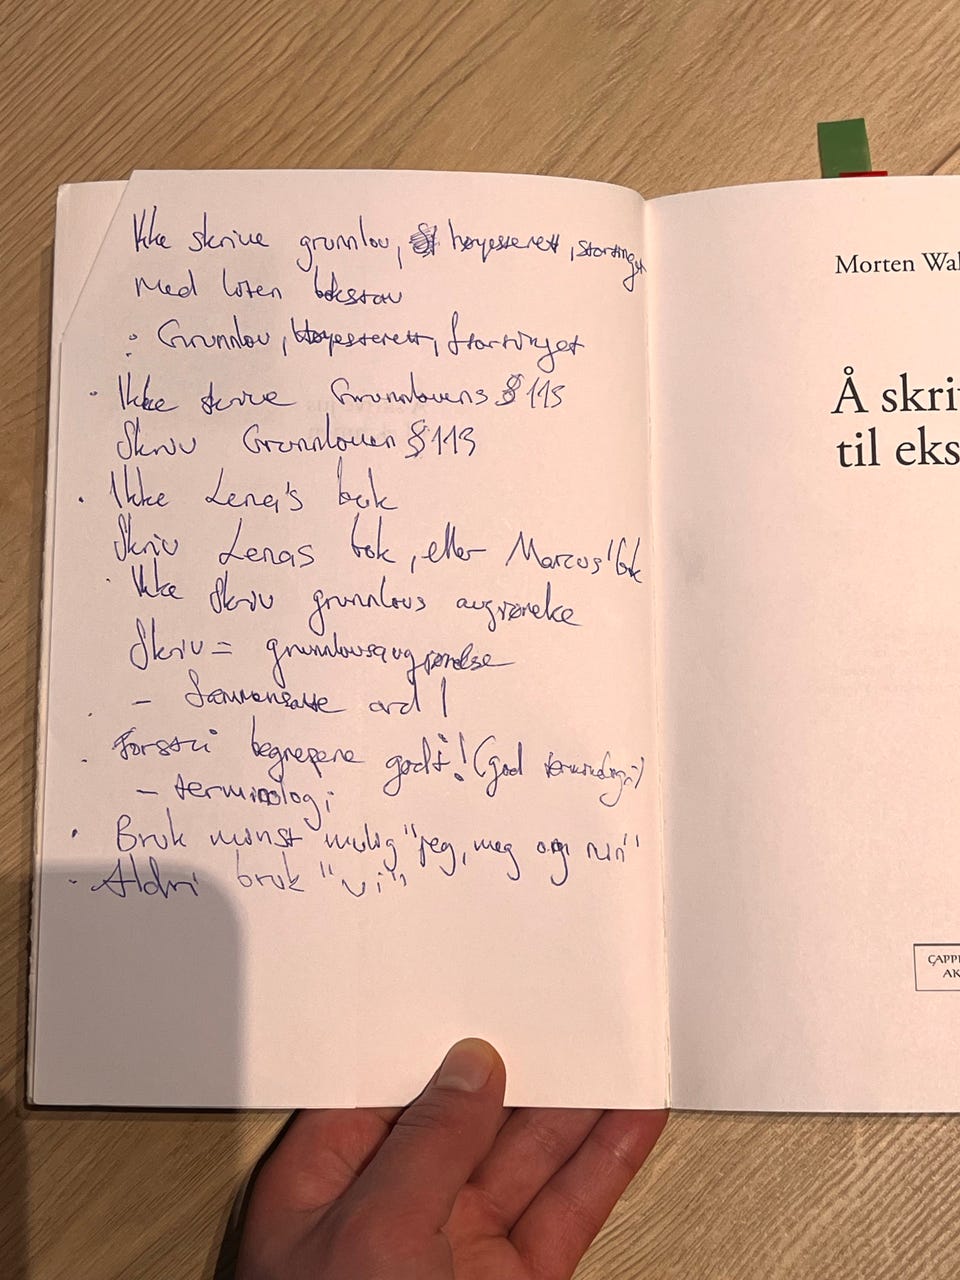 Ikke skrive grunnlov, høyesterett, stortinget
med liten bokstav
: Grunnlov, Høyesterett, Stortinget
• Ikke skrive Grunnlovens § 113
Skriv Grunnloven § 113
• Ikke Lena's bok
Skriv Lenas bok, eller Marcus' bok
• Ikke skriv grunnlovs avgjørelse
Skriv = grunnlovsavgjørelse
- Sammensatte ord!
• Forstå begrepene godt! (god terminologi)
- terminologi
• Bruk minst mulig "jeg, meg og min"
• Aldri bruk "vi"
Morten Wal
Å skri
til eks
CAPP
AK